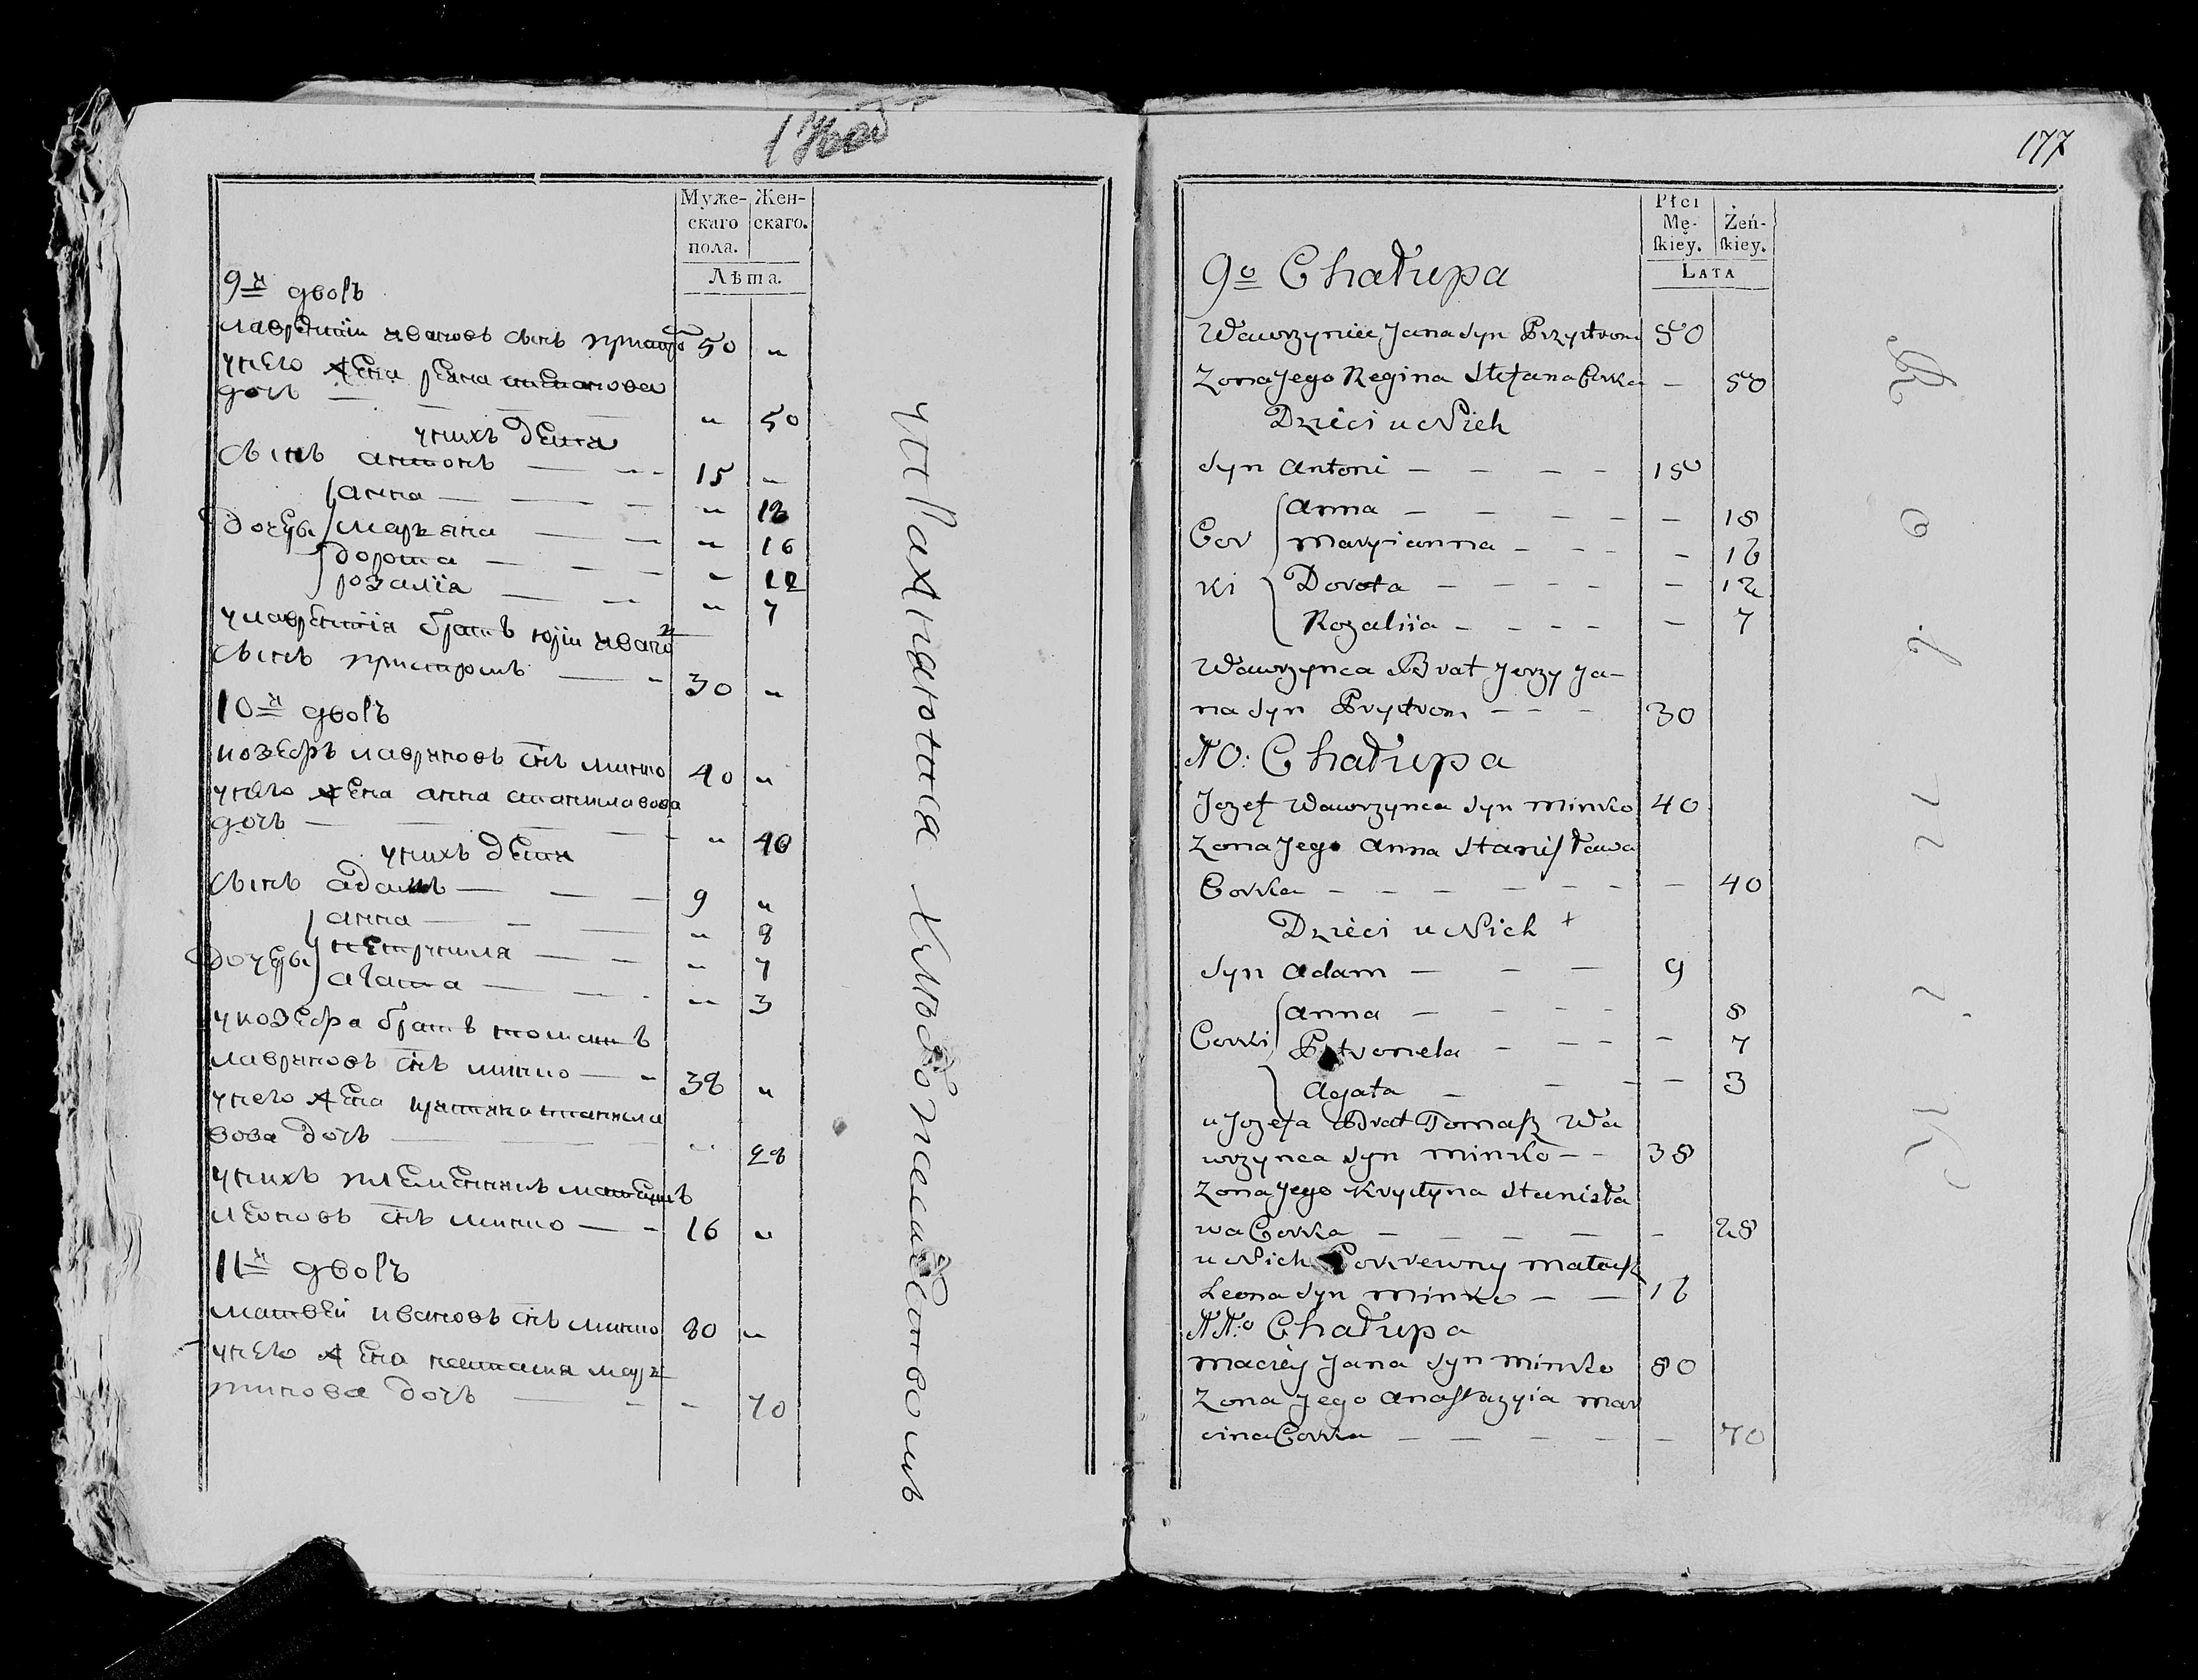 Муже-
скаго
пола.
Жен-
скаго.
Лѣта.
9я дворъ
лаврентiи ивановъ сынъ пристро 50 "
унего жена реина стефанова
дочь — — — " 50
унихъ дети
сынъ антонъ — — - 15 "
анна — — — " 18
дочери марьяна — — " 16
дорота — — — " 12
розалiя — — " 7
улаврентiя братъ юрiи ивано
сынъ пристромъ — - 30 "
10я дворъ
иозефъ лавриновъ снъ минко 40 "
унего жена анна станиславова
дочь — — — " 40
унихъ дети
сынъ адамъ — — — 9 "
анна — — — " 8
дочери петрунеля — — " 7
агата — — - " 3
уиозефа братъ томашъ
лавриновъ снъ минко — - 38 "
унего жена кристина станисла
вова дочь — — — " 28
унихъ племенникъ матеушъ
леоновъ снъ минко — - 16 "
11я дворъ
матвей ивановъ снъ минко 80 "
унего жена настася мар
тинова дочь — - - 70
упражняются хлебопашествомъ
177
Płci
Mę-
ſkiey.
Żeń-
ſkiey.
LATA
9o Chałupa
Wawrzyniec Jana Syn Przystrom 50
Zona Jego Regina Stefana Corka — 50
Dzieci u Nich
Syn Antoni — — — — 15
Anna — — — — — 18
Cor Maryianna — - - — 16
ki Dorota — — — — — 12
Rozaliia — - - - — 7
Wawrzynca Brat Jerzy Ja-
na Syn Prystrom — — — 30
10: Chałupa
Jozef Wawrzynca Syn Minko 40
Zona Jego Anna Stanisława
Corka — — — — — — — 40
Dzieci u Nich +
Syn Adam — — — 9
Anna — — — - 8
Corki Petronela — - - - — 7
Agata — — - — 3
u Jozefa Brat Tomaſz Wa
wrzynca Syn Minko — - 38
Zona Jego Krystyna Stanisła
wa Corka — — — — — — 28
u Nich Pokrewny Mateuſz
Leona Syn Minko — — 16
11o Chałupa
Maciey Jana Syn Minko 80
Zona Jego Anaſtazyia Mar
cina Corka — — — — — — 70
Rolnik